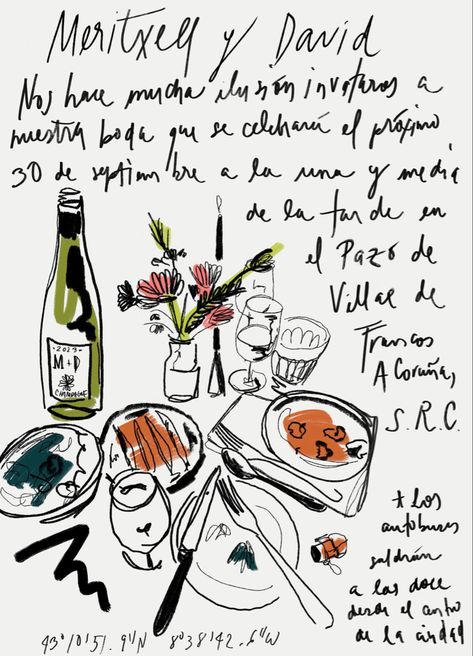 Meritxell y David
Nos hace mucha ilusión invitaros a
nuestra boda que se celebrará el próximo
30 de septiembre a la una y media
de la tarde en
el Pazo de
Villar de
Francos
A Coruña,
S.R.C.
·2023·
M+D
CHAMPAGNE
* los
autobuses
saldrán
a las doce
desde el centro
de la ciudad
43°10'51.9"N 8°38'42.6"W